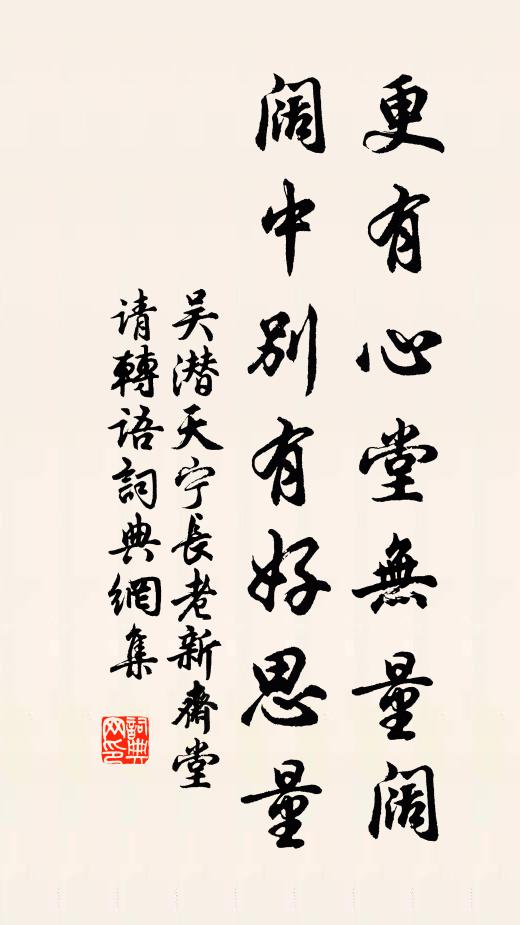 更有心堂無量阔
阔中别有好思量
吴潜天宁長老新齋堂
请轉语詞典網集
詞典網印